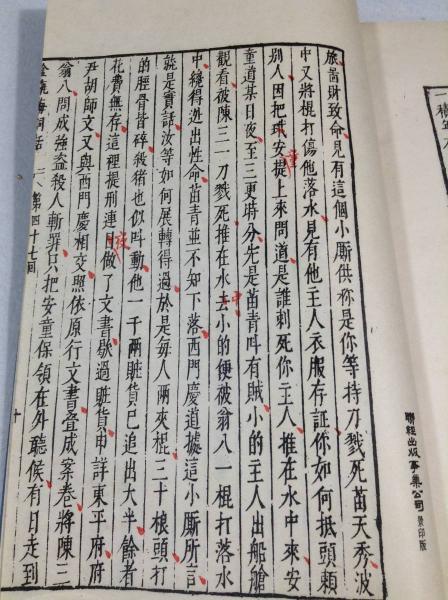 聯經出版事業公司 景印版
旅啚財致命見有這個小厮供你是你等持刀戮死苗天秀波
中又將棍打傷他落水見有他主人衣服存証你如何抵頭賴
別人因把安提上來問道是誰刺死你主人推在水中來安
童
童道某日夜至三更時分先是苗青呌有賊小的主人出船艙
觀看被陳三一刀戮死推在水去小的便被翁八一棍打落水
中
中纔得逃出性命苗青並不知下落西門慶道據這小厮所言
就是實話汝等如何展轉得過於是每人兩夾棍三十榔頭打
的脛骨皆碎殺猪也似呌動他一千兩賍貨已追出大半餘者
花費無存這裡提刑連日做了文書歇過賍貨申詳東平府府
尹胡師文又與西門慶相交照依原行文書叠成案卷將陳三
翁八問成強盜殺人斬罪只把安童保領在外聽候有日走到
金瓶梅詞話 第四十七回 十